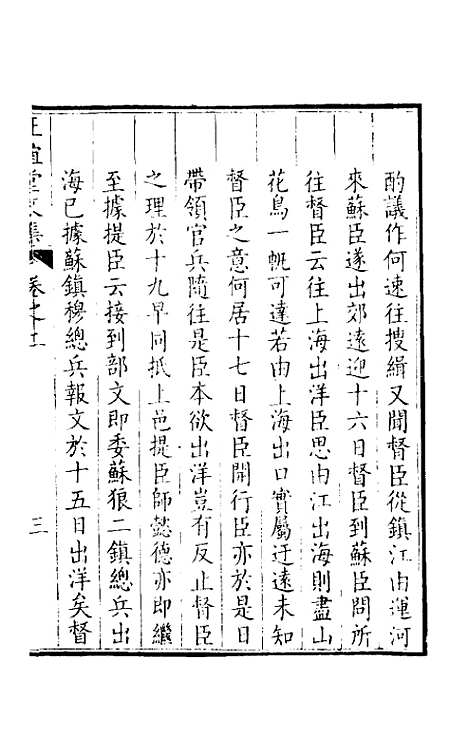 酌議作何速往搜緝又聞督臣從鎮江由運河
來蘇臣遂出郊遠迎十六日督臣到蘇臣問所
往督臣云往上海出洋臣思由江出海則盡山
花鳥一帆可達若由上海出口實屬迂遠未知
督臣之意何居十七日督臣開行臣亦於是日
帶領官兵隨往是臣本欲出洋豈有反止督臣
之理於十九早同抵上邑提臣師懿德亦即繼
至據提臣云接到部文即委蘇狼二鎮總兵出
海已據蘇鎮穆總兵報文於十五日出洋矣督
正誼堂文集 卷之二 三